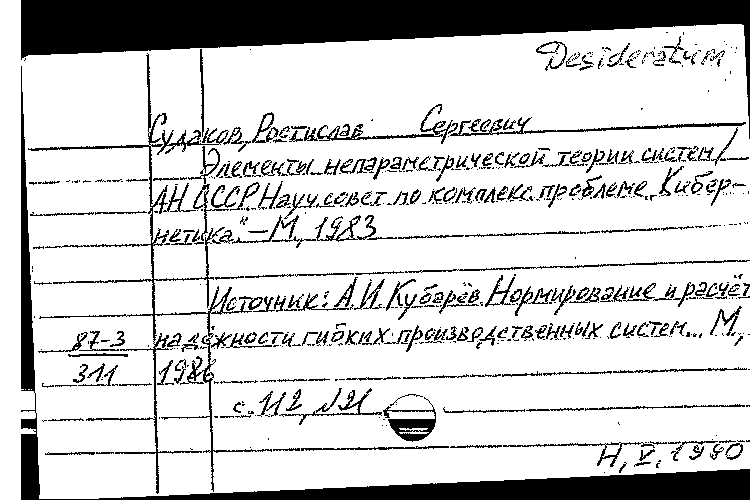 Desideratum
Судаков, Ростислав Сергеевич
Элементы непараметрической теории систем /
АН СССР. Науч. совет по комплекс. проблеме „Кибер-
нетика". – М., 1983
Источник: А.И. Кубарев. Нормирование и расчёт
87-3 надёжности гибких производственных систем... М.,
311 1986
с. 112, №21
Н, V, 1990